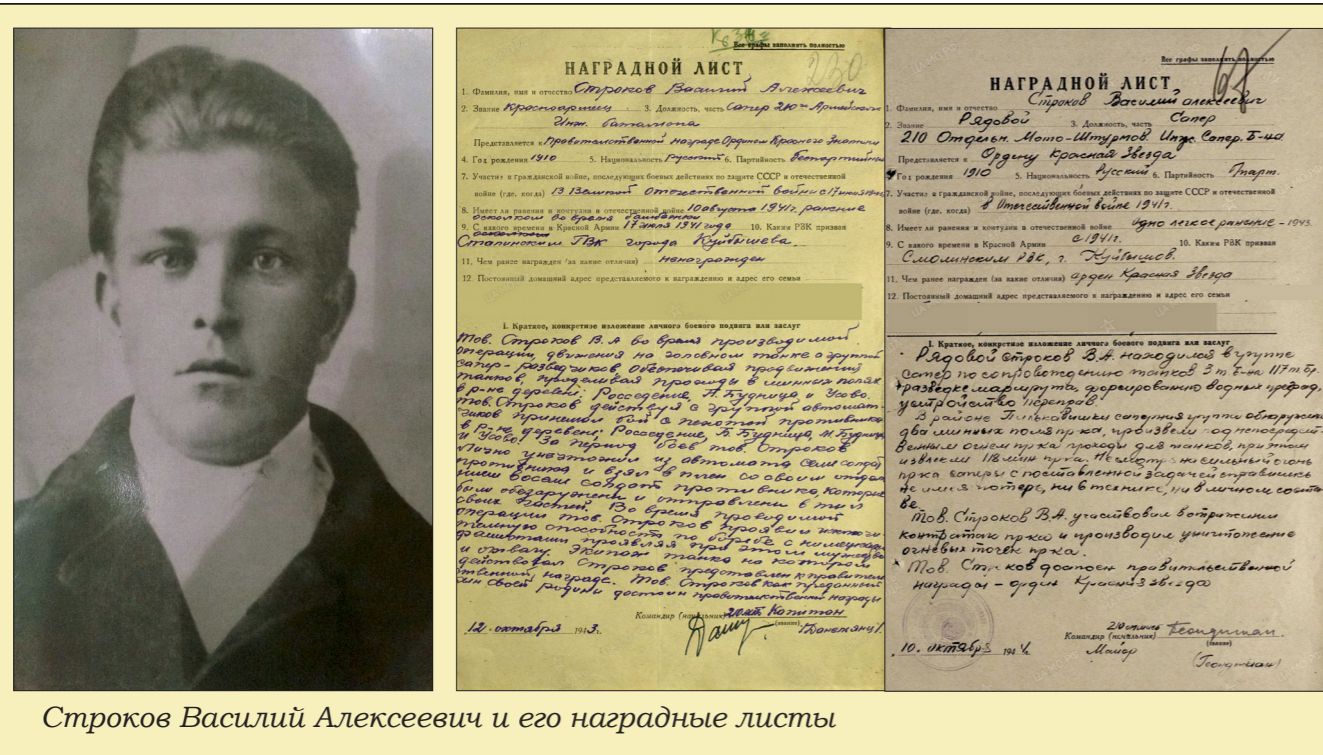 К63
Все графы заполнить полностью
230
НАГРАДНОЙ ЛИСТ
1. Фамилия, имя и отчество Строков Василий Алексеевич
2. Звание Красноармеец 3. Должность, часть Сапер 210го Армейского
Инж. батальона
Представляется к Правительственной награде Орденом Красного Знамени
4. Год рождения 1910 5. Национальность Русский 6. Партийность беспартийный
7. Участие в гражданской войне, последующих боевых действиях по защите СССР и отечественной
войне (где, когда) В Великой Отечественной войне с 17 июля 1941
8. Имеет ли ранения и контузии в отечественной войне 10 августа 1941г. ранение
осколком во время
9. С какого времени в Красной Армии 17 июля 1941 года 10. Каким РВК призван
Сталинским ГВК города Куйбышева
11. Чем ранее награжден (за какие отличия) ненагражден
12. Постоянный домашний адрес представляемого к награждению и адрес его семьи
I. Краткое, конкретное изложение личного боевого подвига или заслуг
Тов. Строков В.А во время производимой
операции, движения на головном танке с группой
сапер-разведчиков обеспечивая продвижение
танков, проделывая проходы в минных полях
в р-не деревень: Росседение, П. Будница, и Усово.
Тов. Строков действуя с группой автомат-
чиков принимал бой с пехотой противника
в р-не деревень: Росседение, Б. Будница, М. Будница
и Усово. За период боев тов. Строков
лично уничтожил из автомата семь солдат
противника и взял в плен со своим отделе-
нием восемь солдат противника, которые
были обезоружены и отправлены в тыл
своих частей. Во время проводимой
операции тов. Строков проявил
способность по борьбе с немецкими
фашистами проявляя при этом мужество
и отвагу. Экипаж танка на котором
действовал Строков представлен к правитель-
ственной награде. Тов. Строков как преданный
сын своей родины достоин правительственной награды
Командир (начальник) 210 Капитан
(звание)
12. октября 1943 г.
Все графы заполнить полностью
НАГРАДНОЙ ЛИСТ
1. Фамилия, имя и отчество Строков Василий Алексеевич
2. Звание Рядовой 3. Должность, часть Сапер
210 Отдельн. Мото-Штурмов. Инж. Сапер. Б-на
Представляется к Ордену Красная Звезда
4 Год рождения 1910 5. Национальность Русский 6. Партийность б/парт.
7. Участие в гражданской войне, последующих боевых действиях по защите СССР и отечественной
войне (где, когда) в Отечественной войне 1941г.
8. Имеет ли ранения и контузии в отечественной войне Одно легкое ранение - 1943.
9. С какого времени в Красной Армии с 1941г. 10. Каким РВК призван
Смолинским РВК, г. Куйбышов.
11. Чем ранее награжден (за какие отличия) орден Красная Звезда
12. Постоянный домашний адрес представляемого к награждению и адрес его семьи
I. Краткое, конкретное изложение личного боевого подвига или заслуг
Рядовой Строков В.А. находился в группе
сапер по сопровождению танков 3 т.б-на 117 т.бр.
разведке маршрута, форсированию водных преград,
устройство переправ.
В районе Пильковишки саперная группа обнаружила
два минных поля пр-ка, произвели под непосредст-
венным огнем пр-ка проходы для танков, при этом
извлекли 118 мин пр-ка. Несмотря на сильный огонь
пр-ка саперы с поставленной задачей справились
не имея потерь, ни в технике, ни в личном соста-
ве.
Тов. Строков В.А. участвовал в отражении
контратак пр-ка и производил уничтожение
огневых точек пр-ка.
Тов. Строков достоин правительственной
награды - орден Красная звезда
Командир (начальник)
(звание)
10. октября 1944 г. Майор
Строков Василий Алексеевич и его наградные листы